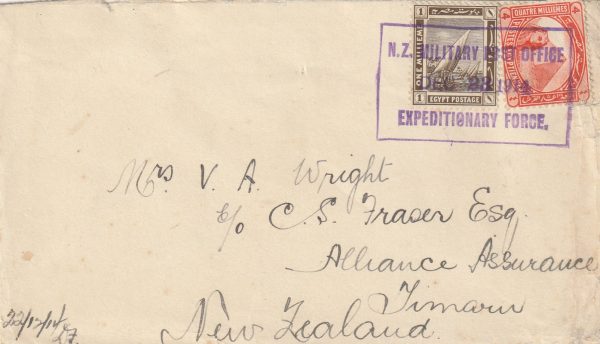 N.Z. MILITARY POST OFFICE
DEC 23 1914
EXPEDITIONARY FORCE.
1 ONE MILLIEME
1 EGYPT POSTAGE 1
QUATRE MILLIEMES
Mrs V. A. Wright
c/o C. S. Fraser Esq.
Alliance Assurance
Timaru
New Zealand.
22/12/14